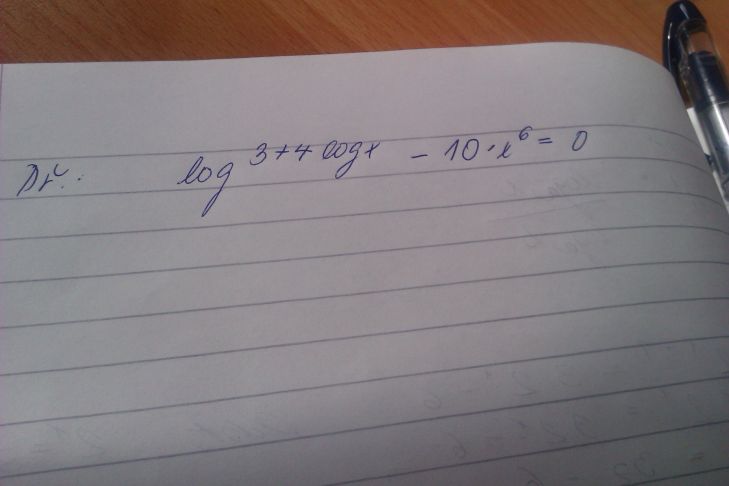 Př.: log^{3+4 log x} - 10·x^6 = 0